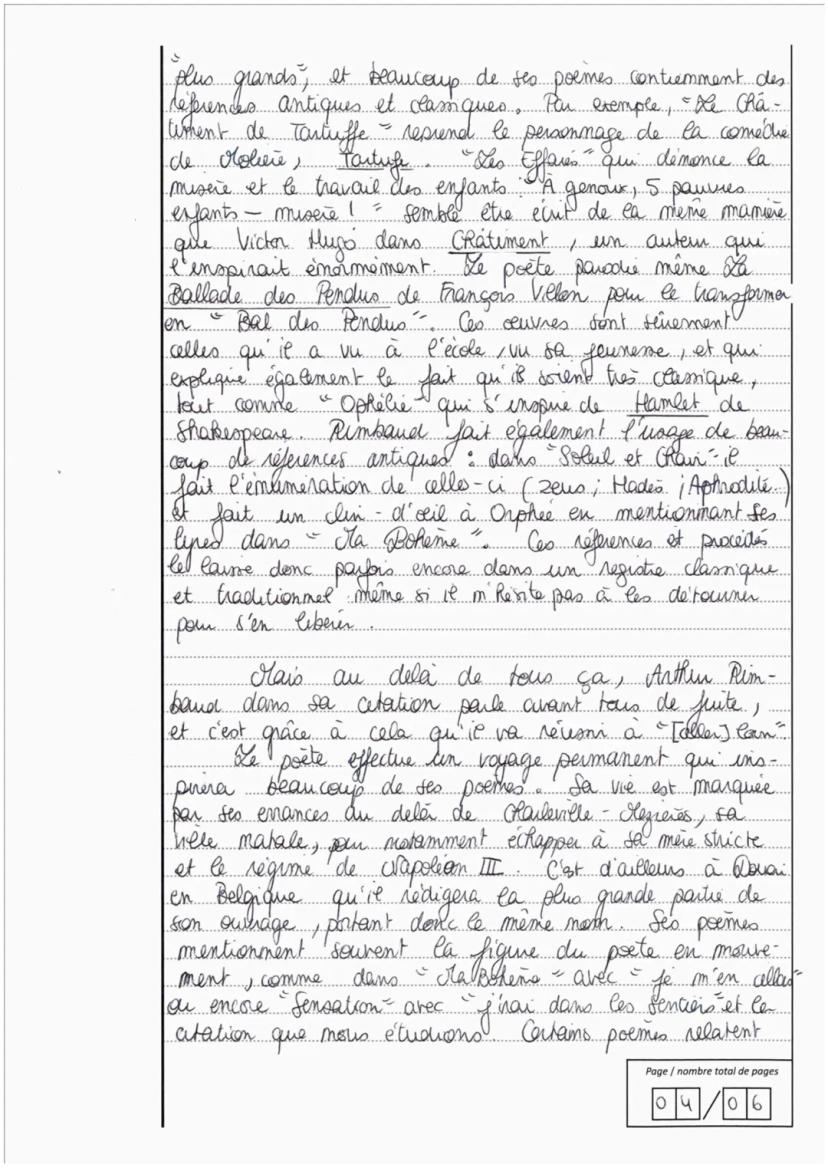 "plus grands", et beaucoup de ses poèmes contiennment des
références antiques et classiques. Par exemple, "Le Châ-
timent de Tartuffe" reprend le personnage de la comédie
de Molière, Tartufe. "Les Effarés" qui dénonce la
misère et le travail des enfants : "À genoux, 5 pauvres
enfants — misère !" semble être écrit de la même manière
que Victor Hugo dans Châtiment, un auteur qui
l'inspirait énormément. Le poète parodie même La
Ballade des Pendus de François Villon pour le transformer
en "Bal des Pendus". Ces œuvres sont sûrement
celles qu'il a vu à l'école, vu sa jeunesse, et qui
explique également le fait qu'ils soient très classique,
tout comme "Ophélie" qui s'inspire de Hamlet de
Shakespeare. Rimbaud fait également l'usage de beau-
coup de références antiques : dans "Soleil et Chair" il
fait l'énumération de celles-ci (Zeus ; Hadès ; Aphrodite...)
et fait un clin-d'œil à Orphée en mentionnant ses
lyres dans "Ma Bohème". Ces références et procédés
le laisse donc parfois encore dans un registre classique
et traditionnel même si il n'hésite pas à les détourner
pour s'en libérer.
Mais au delà de tous ça, Arthur Rim-
baud dans sa citation parle avant tous de fuite,
et c'est grâce à cela qu'il va réussi à "[aller] loin".
Le poète effectue un voyage permanent qui ins-
pirera beaucoup de ses poèmes. Sa vie est marquée
par ses errances au delà de Charleville-Mézières, sa
ville natale, pour notamment échapper à sa mère stricte
et le régime de Napoléon III. C'est d'ailleurs à Douai
en Belgique qu'il rédigera la plus grande partie de
son ouvrage, portant donc le même nom. Ses poèmes
mentionnent souvent la figure du poète en mouve-
ment, comme dans "Ma Bohème" avec "je m'en allais"
ou encore "Sensation" avec "j'irai dans les sentiers" et la
citation que nous étudions. Certains poèmes relatent
Page / nombre total de pages
04/06